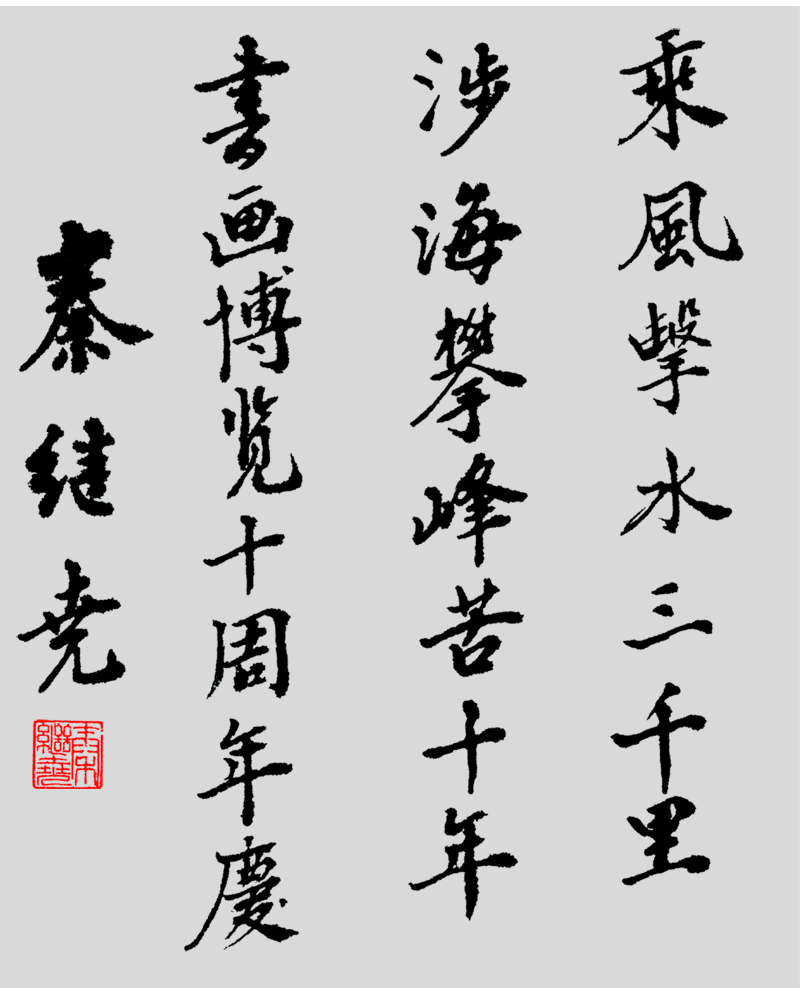 乘風擊水三千里
涉海攀峰苦十年
書画博览十周年慶
秦继尧
秦繼堯